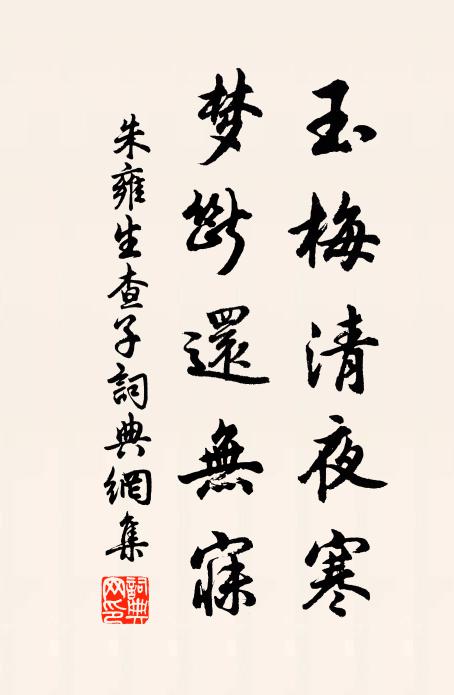 玉梅清夜寒
梦斷還無寐
朱雍生查子詞典網集
詞典網印